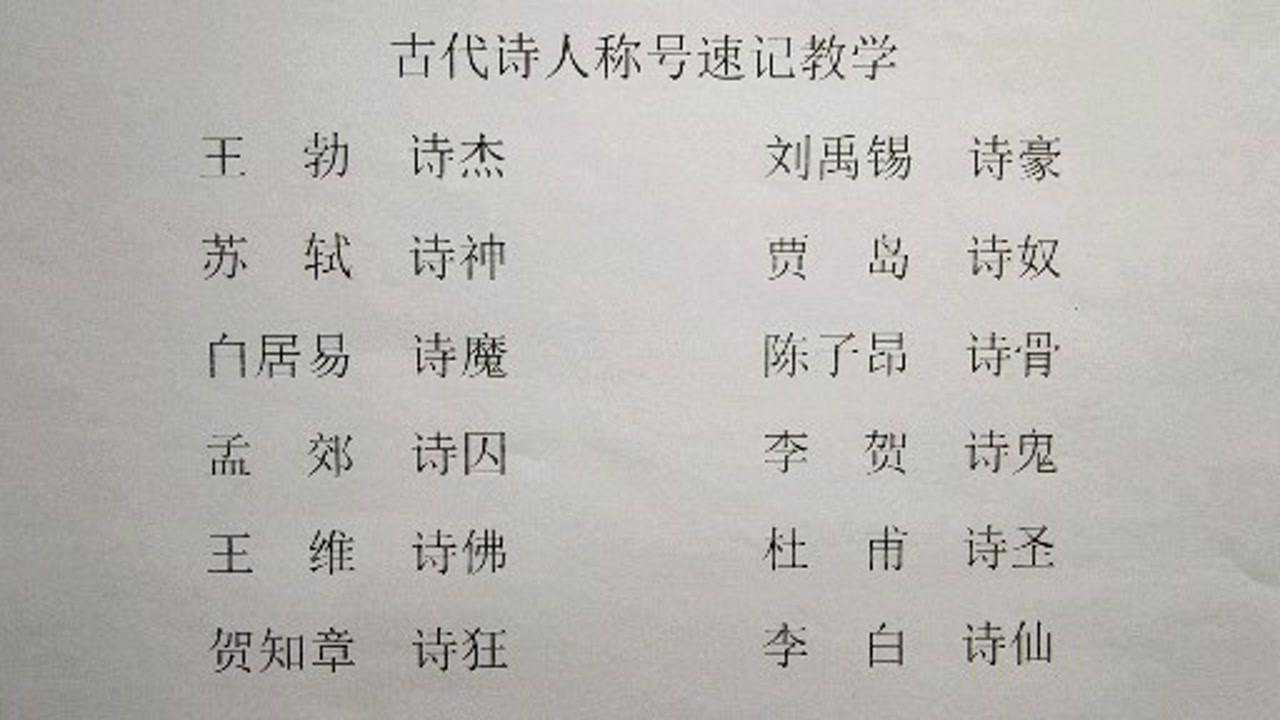 古代诗人称号速记教学
王 勃 诗杰 刘禹锡 诗豪
苏 轼 诗神 贾 岛 诗奴
白居易 诗魔 陈子昂 诗骨
孟 郊 诗囚 李 贺 诗鬼
王 维 诗佛 杜 甫 诗圣
贺知章 诗狂 李 白 诗仙